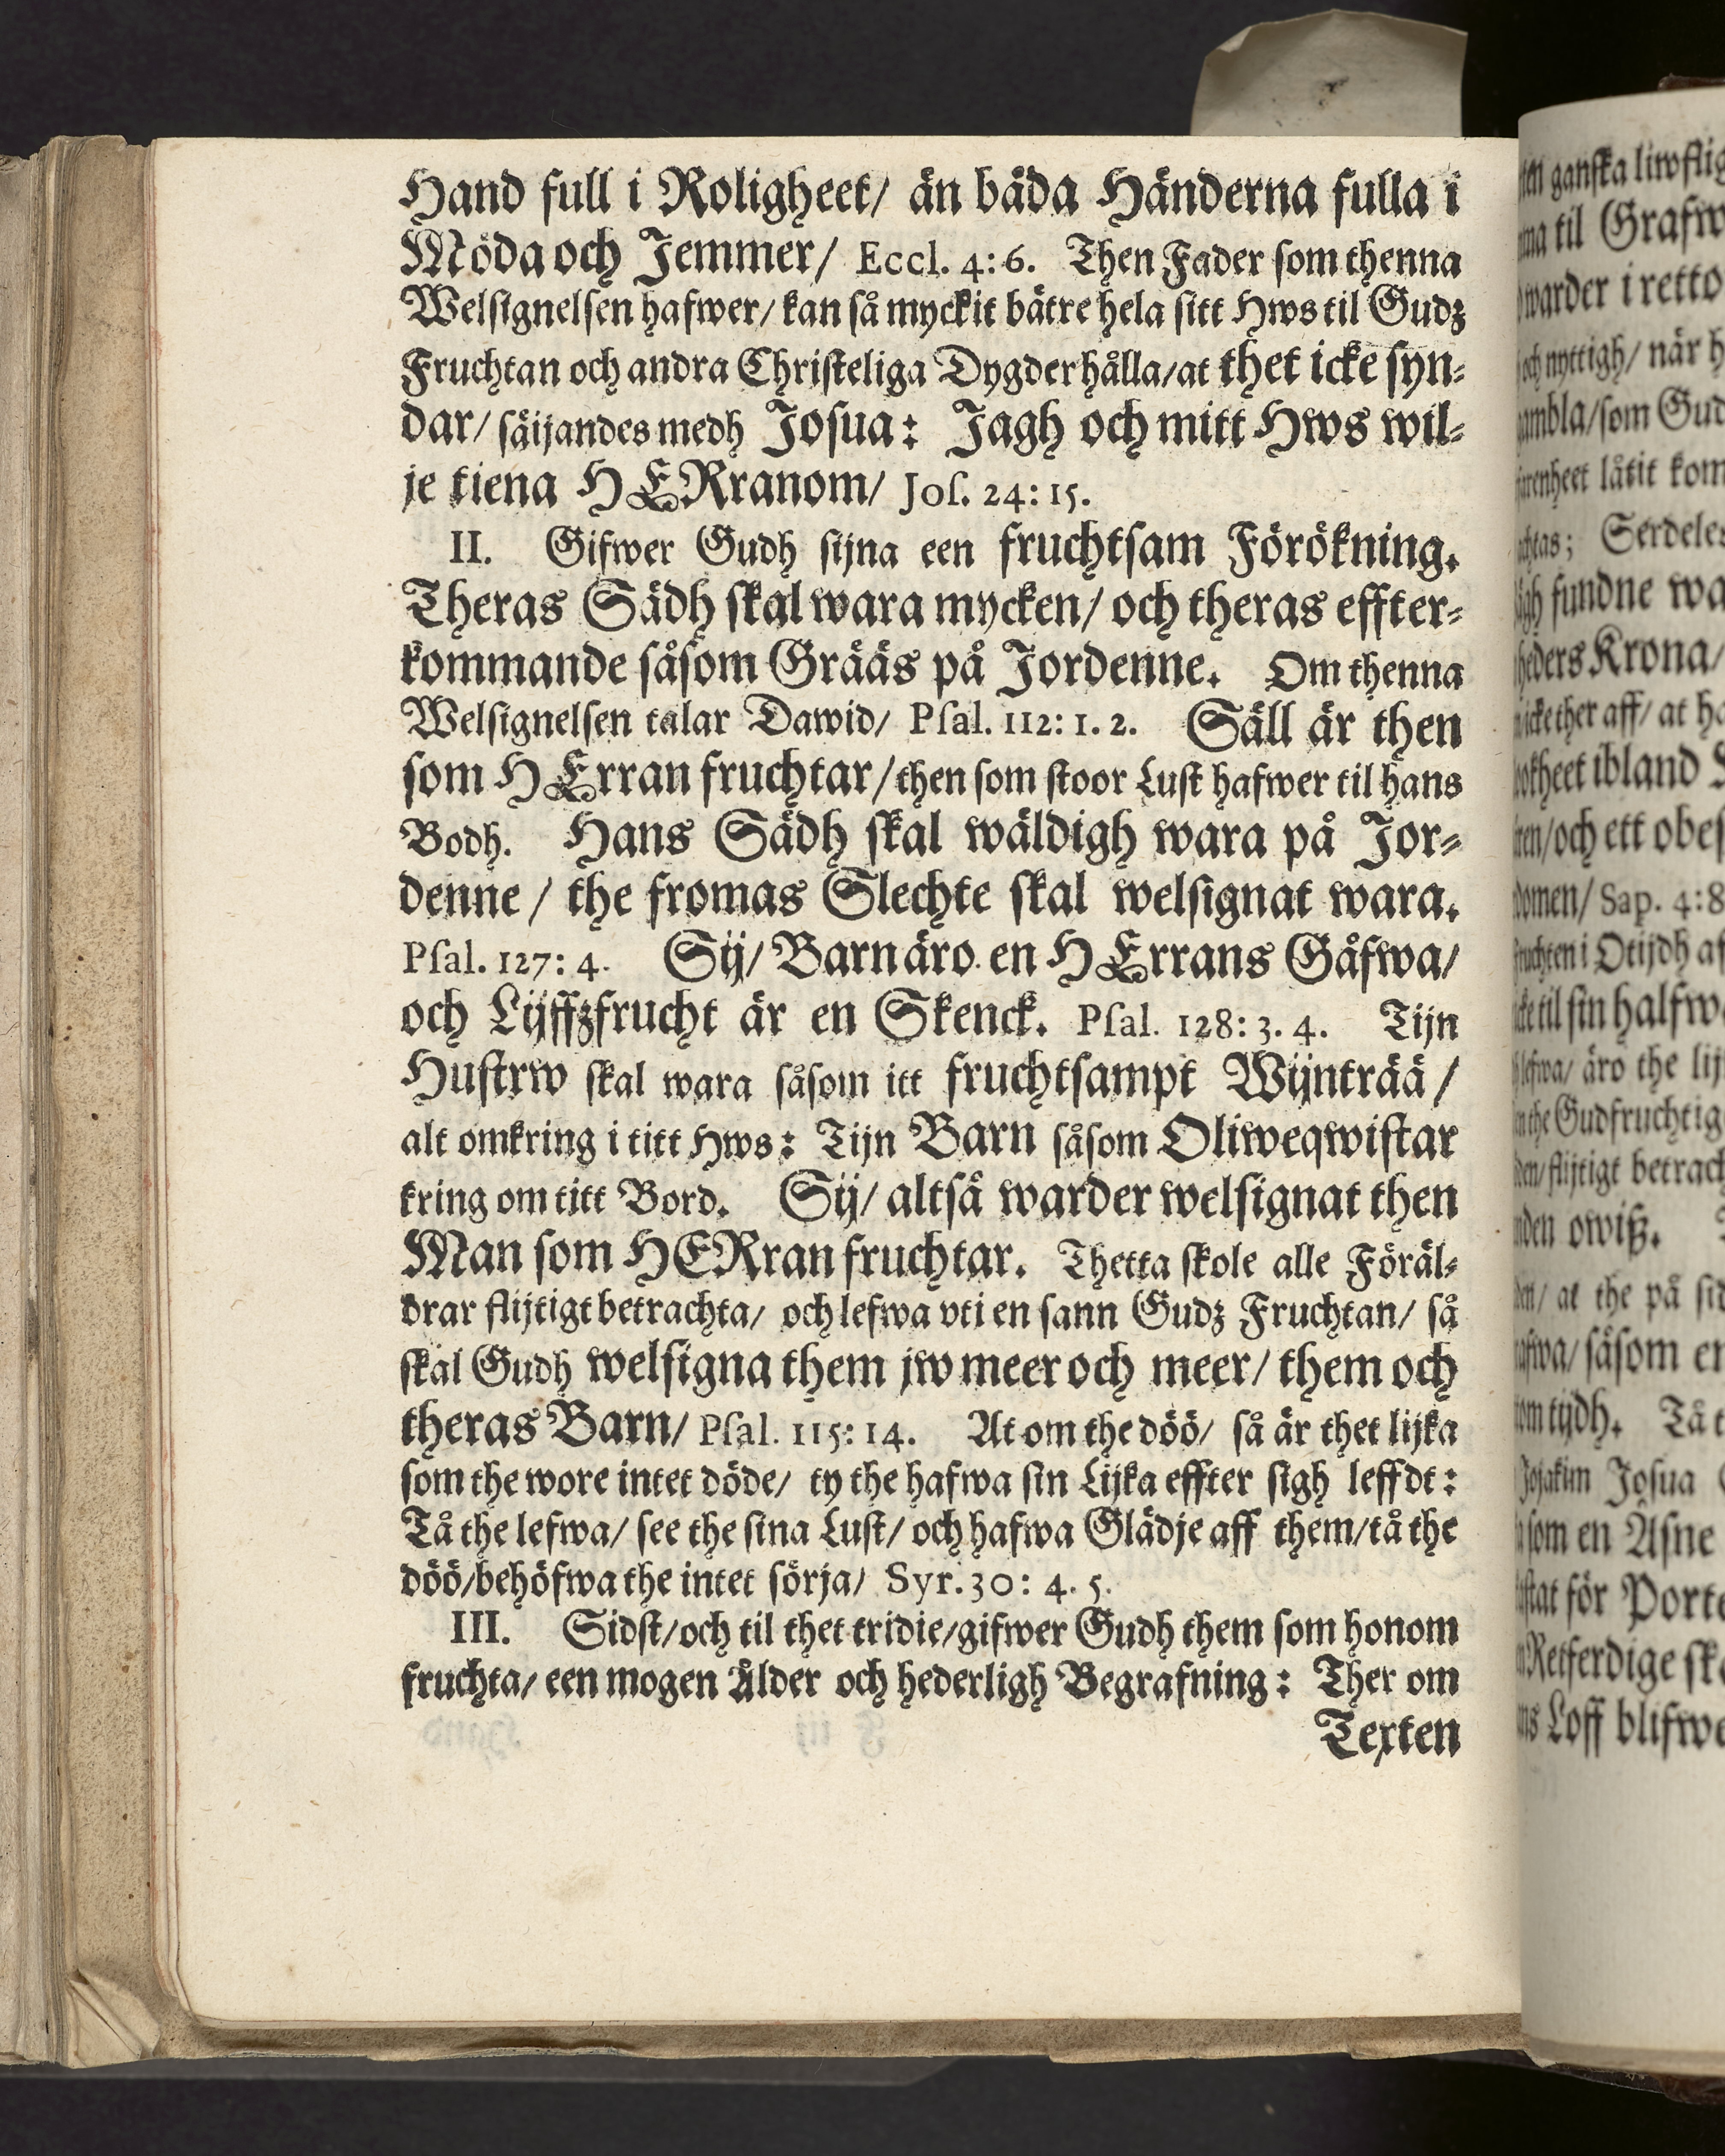 Hand full i Roligheet/ än båda Händerna fulla i
Möda och Jemmer/ Eccl. 4: 6. Then Fader som thenna
Welsignelsen hafwer/ kan så myckit bätre hela sitt Hws til Gudz
Fruchtan och andra Christeliga Dygder hålla/ at thet icke syn-
dar/ säijandes medh Josua: Jagh och mitt Hws wil-
je tiena HERranom/ Jos. 24: 15.
II. Gifwer Gudh sijna een fruchtsam Förökning.
Theras Sädh skal wara mycken/ och theras effter-
kommande såsom Grääs på Jordenne. Om thenna
Welsignelsen talar Dawid/ Psal. 112: 1. 2. Säll är then
som HErran fruchtar/ then som stoor Lust hafwer til hans
Bodh. Hans Sädh skal wäldigh wara på Jor-
denne/ the fromas Slechte skal welsignat wara.
Psal. 127: 4. Sij/ Barn äro en HErrans Gåfwa/
och Lijffzfrucht är en Skenck. Psal. 128: 3. 4. Tijn
Hustrw skal wara såsom itt fruchtsampt Wijnträä/
alt omkring i titt Hws: Tijn Barn såsom Oliweqwistar
kring om titt Bord. Sij/ altså warder welsignat then
Man som HERran fruchtar. Thetta skole alle Föräl-
drar flijtigt betrachta/ och lefwa vti en sann Gudz Fruchtan/ så
skal Gudh welsigna them jw meer och meer/ them och
theras Barn/ Psal. 115: 14. At om the döö/ så är thet lijka
som the wore intet döde/ ty the hafwa sin Lijka effter sigh leffdt:
Tå the lefwa/ see the sina Lust/ och hafwa Glädje aff them/ tå the
döö/ behöfwa the intet sörja/ Syr. 30: 4. 5.
III. Sidst/ och til thet tridie/ gifwer Gudh them som honom
fruchta/ een mogen Ålder och hederligh Begrafning: Ther om
Texten
ganska
til
warder i
och nyttigh/ när
som
låtit
Serdeles
fundne
Krona/
ther aff/ at
ibland
och ett
Sap. 4: 8
i Otijdh
til sin
äro the
the
flijtigt
owiß.
at the på
såsom
Tå
Josua
som en Åsne
för
Retferdige
Loff